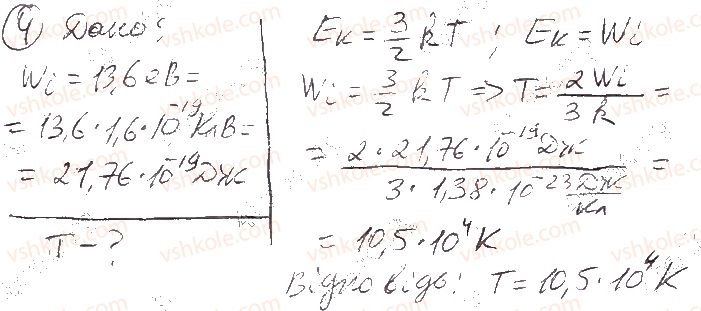 ④ Дано:
Wi = 13,6 eВ =
= 13,6 · 1,6 · 10⁻¹⁹ КлВ =
= 21,76 · 10⁻¹⁹ Дж
T - ?
Eк = 3/2 k T ; Eк = Wi
Wi = 3/2 k T => T = 2 Wi / 3 k =
= 2 · 21,76 · 10⁻¹⁹ Дж / 3 · 1,38 · 10⁻²³ Дж/Кл =
= 10,5 · 10⁴ K
Відповідь: T = 10,5 · 10⁴ K